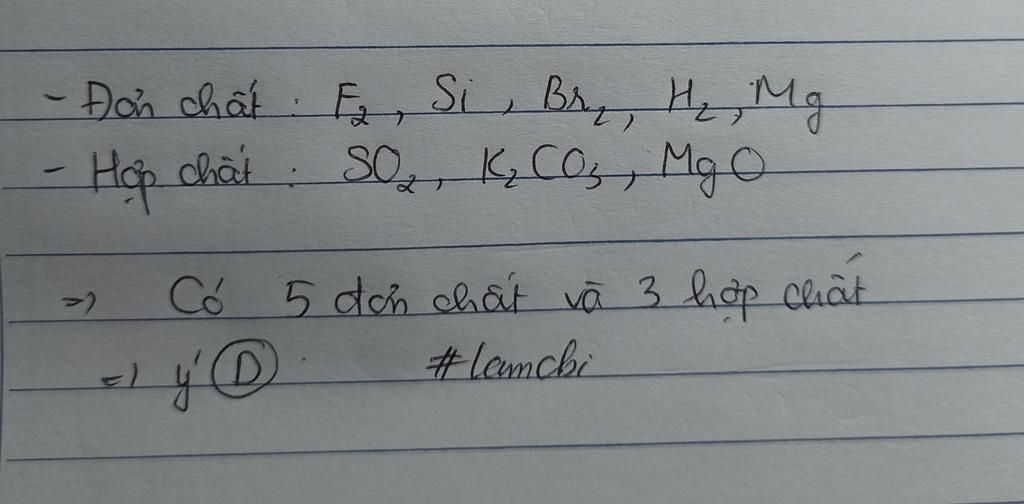 - Đơn chất : F₂, Si, Br₂, H₂, Mg
- Hợp chất : SO₂, K₂CO₃, MgO
=> Có 5 đơn chất và 3 hợp chất
=> ý D. #lamchi